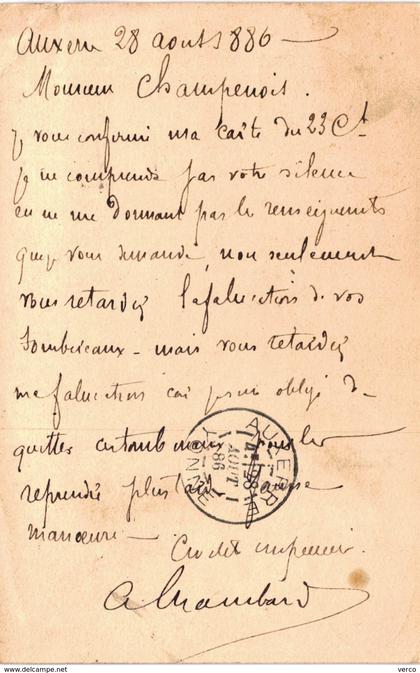 Auxerre 28 aout 1886
Monsieur Champenois.
Je vous confirme ma carte du 23 Ct
je ne comprends pas votre silence
en ne me donnant pas les renseignements
que je vous demande, non seulement
vous retardez la fabrication de vos
Tombereaux - mais vous retardez
ma fabrication car je suis obligé de
quitter
reprendre plus tard
manoeuvre
AUXERRE
AOUT
86
YONNE
AChambard
www.delcampe.net
verco